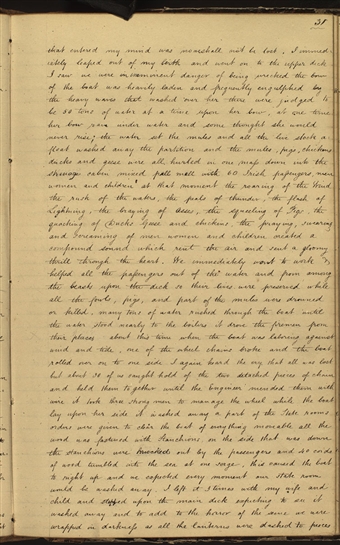 31
that entered my mind was we shall not be lost. I immed-
iately leaped out of my berth and went on to the upper deck
I saw we were in imminent danger of being wrecked the bow
of the boat was heavily laden and frequently engulphed by
the heavy waves that washed over her there were judged to
be 50 tons of water at a time upon her bow, at one time
her bow ran under water and some thought she would
never rise; the water set the mules and all the live stock a-
float washed away the partition and the mules, pigs, chickens
ducks and geese were all hurled in one mass down into the
steerage cabin mixed pell mell with 60 Irish passengers, men
women and children at that moment the roaring of the Wind
the rush of the waters, the peals of thunder, the flash of
Lightning, the braying of Asses, the squealing of Pigs, the
quacking of Ducks Geese and chickens, the praying, swearing
and screaming, of men women and children created a
compound sound which rent the air and sent a gloomy
thrill through the heart. We immediately went to work &
helped all the passengers out of the water and from among
the beasts upon the deck so their lives were preserved while
all the fowls, pigs, and part of the mules were drowned
or killed. many tons of water rushed through the boat until
the water stood nearly to the boilers it drove the firemen from
their places. about this time when the boat was laboring against
wind and tide, one of the wheel chains broke and the boat
rolled over on to one side I again heard the cry that all was lost
but about 20 of us caught hold of the two detached pieces of chain
and held them together until the engineer mended them with
wire it took three strong men to manage the wheel while the boat
lay upon her side it washed away a part of the State rooms
orders were given to clear the boat of everything moveable all the
wood was fastened with Stanchions, on the side that was down
the stanchions were knocked out by the passengers and 40 cords
of wood tumbled into the sea at one surge, this caused the boat
to right up and we expected every moment our state room
would be washed away. I left it 3 times with my wife and
child and stopped upon the main deck expecting to see it
washed away and to add to the horror of the scene we were
wrapped in darkness as all the lanterns were dashed to pieces